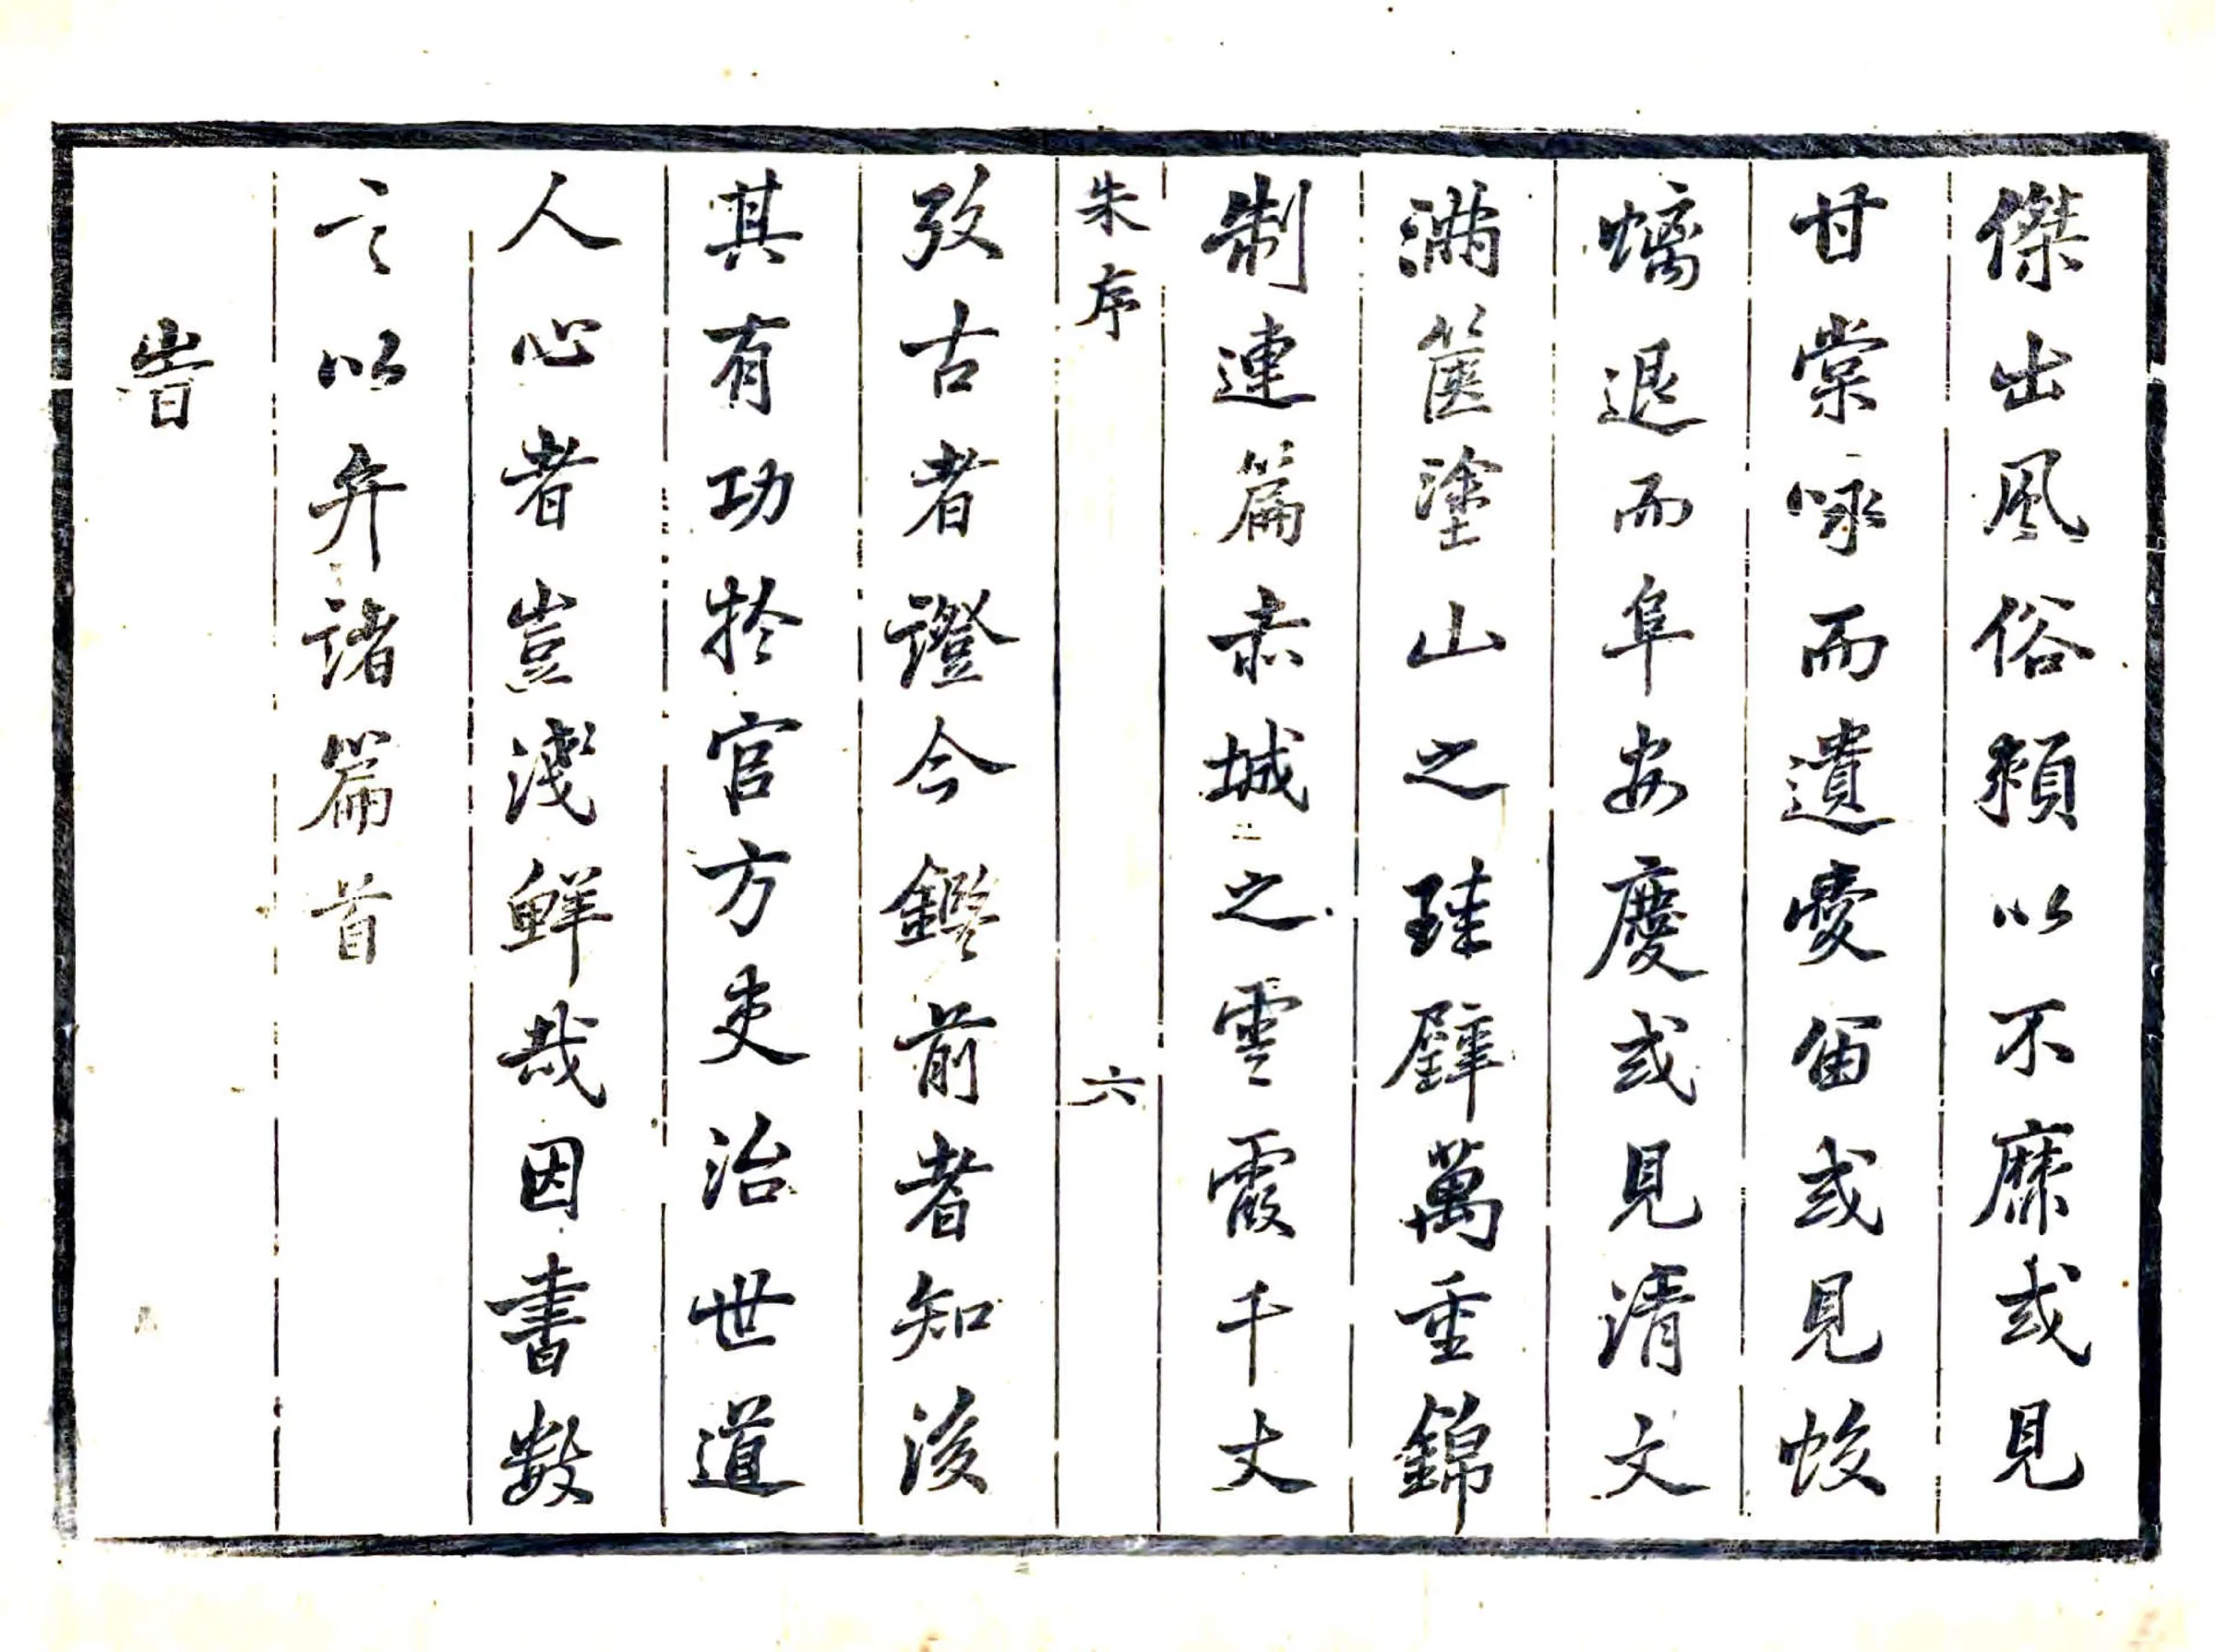 傑出風俗頼以不靡或見
甘棠咏而遺愛留或見蛟
螭退而阜安慶或見清文
滿篋塗山之琭璧萬重錦
制連篇赤城之雲霞千丈
朱序 六
攷古者證今鑑前者知後
其有功於官方吏治世道
人心者豈淺鮮哉因書數
言以弁諸篇首
旹